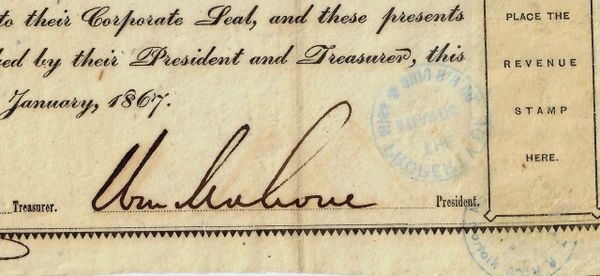 to their Corporate Seal, and these presents
ed by their President and Treasurer, this
January, 1867.
Treasurer.
Wm Mahone
President.
PLACE THE
REVENUE
STAMP
HERE.
THE
PROPERTY OF
Norfolk